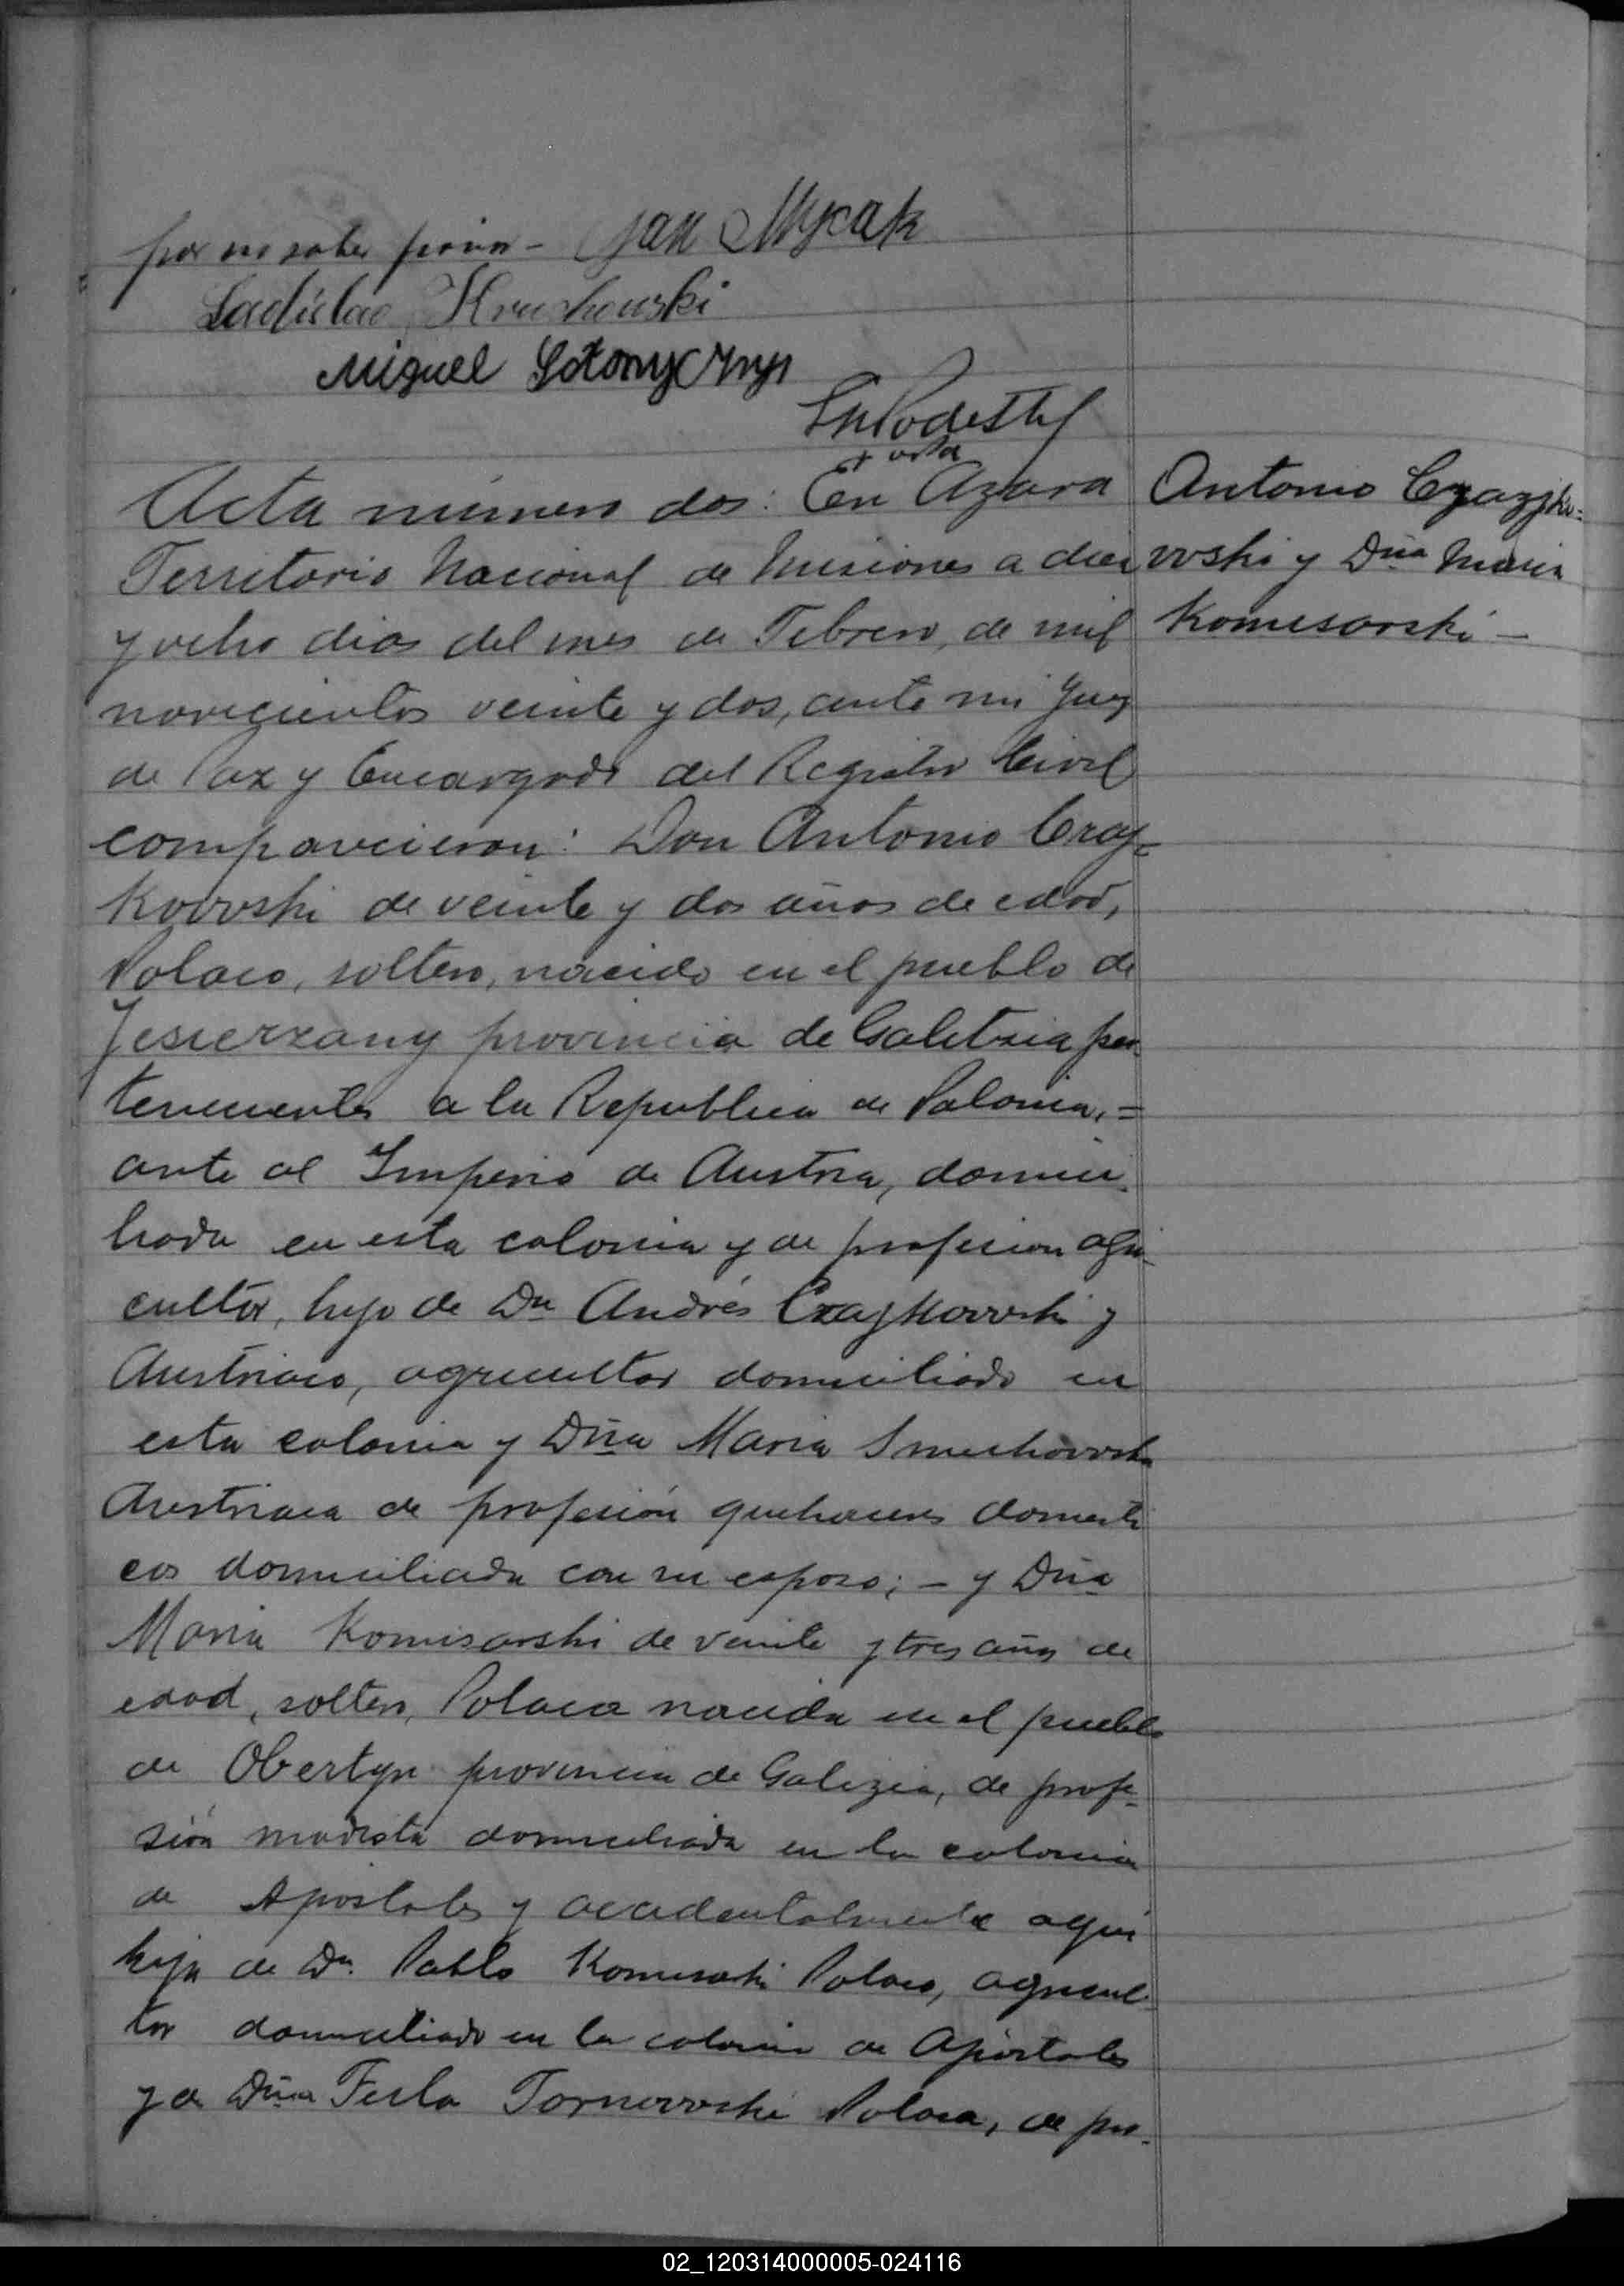 por no saber firmar – Jan Mycak
Ladislao Hruchouski
Miguel
Acta número dos: En Azara
Territorio Nacional de Misiones a diez
y ocho dias del mes de Febrero, de mil
novecientos veinte y dos, ante mi Juez
de Paz y Encargado del Registro Civil
comparecieron: Don Antonio Czaj=
kowski de veinte y dos años de edad,
Polaco, soltero, nacido en el pueblo de
Jesierzany provincia de Galitzia per-
teneciente a la Republica de Polonia, =
ante al Imperio de Austria, domici-
liado en esta colonia y de profesion agri-
cultor, hijo de Dn Andrés Czajkowski y
Austriaco, agricultor domiciliado en
esta colonia y Dña Maria
Austriaca de profesión quehaceres domesti
cos domiciliada con su esposo; – y Dña
Maria Komisarski de veinte y tres años de
edad, soltera, Polaca nacida en el pueblo
de Obertyn provincia de Galizia, de profe-
sión modista domiciliada en la colonia
de Apostoles y accidentalmente aquí
hija de Dn. Pablo Komisarski Polaco, agricul-
tor domiciliado en la colonia de Apóstoles
y de Dña Tecla Tornowski Polaca, de pro-
Antonio Czajko=
wski y Dña Maria
Komisarski –
02_120314000005-024116